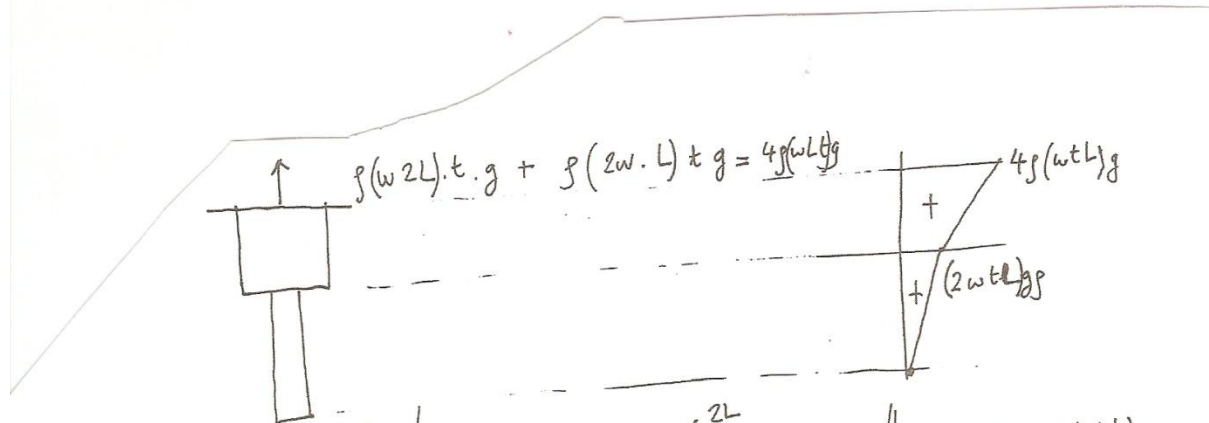 ρ(w 2L).t.g + ρ(2w.L) t g = 4ρ(wLt)g
4ρ(wtL)g
+
(2wtL)gρ
+
2L